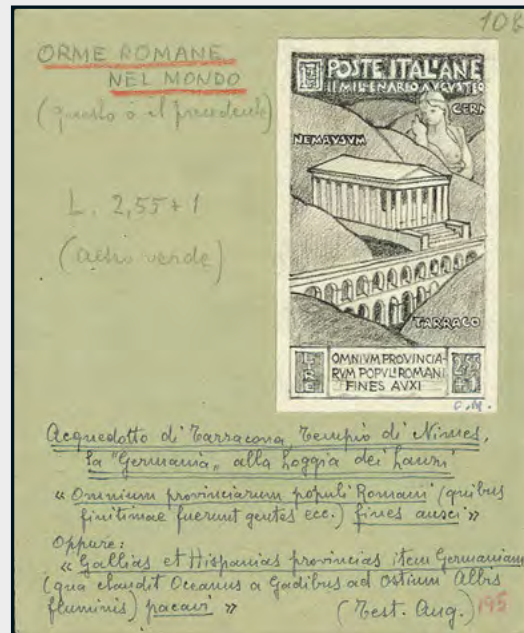 108
ORME ROMANE
NEL MONDO
(questo o il precedente)
L. 2,55 + 1
(altro verde)
POSTE ITALIANE
II MILLENARIO AVGVSTEO
GERM
NEMAVSVM
TARRACO
LIRE
OMNIVM PROVINCIA-
RVM POPVLI ROMANI
FINES AVXI
C.M.
Acquedotto di Tarracona, Tempio di Nimes,
la "Germania" alla Loggia dei Lanzi
« Omnium provinciarum populi Romani (quibus
finitimae fuerunt gentes ecc.) fines auxi »
Oppure:
« Gallias et Hispanias provincias item Germaniam
(qua claudit Oceanus a Gadibus ad ostium Albis
fluminis) pacavi »
(Test. Aug.) 195